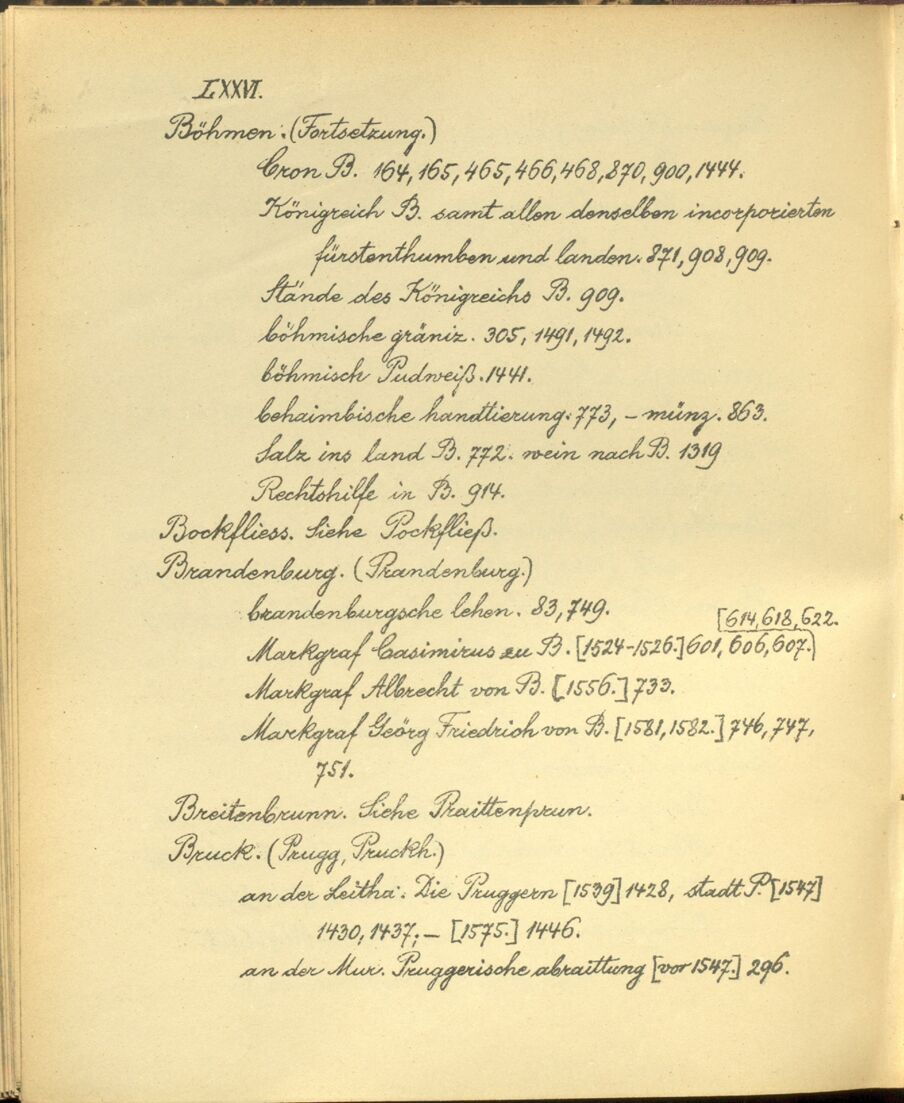 LXXVI.
Böhmen. (Fortsetzung.)
Cron B. 164, 165, 465, 466, 468, 870, 900, 1444.
Königreich B. samt allen denselben incorporierten
fürstenthumben und landen. 871, 908, 909.
Stände des Königreichs B. 909.
böhmische gräniz. 305, 1491, 1492.
böhmisch Pudweiß. 1441.
behaimbische handtierung. 773, – münz. 863.
Salz ins land B. 772. wein nach B. 1319
Rechtshilfe in B. 914.
Bockfliess. Siehe Pockfließ.
Brandenburg. (Prandenburg.)
brandenburgsche lehen. 83, 749.
[614, 618, 622.
Markgraf Casimirus zu B. [1524-1526.] 601, 606, 607.)
Markgraf Albrecht von B. [1556.] 733.
Markgraf Geörg Friedrich von B. [1581, 1582.] 746, 747,
751.
Breitenbrunn. Siehe Praittenprun.
Bruck. (Prugg, Pruckh.)
an der Leitha. Die Pruggern [1539] 1428, stadt P. [1547]
1430, 1437; – [1575.] 1446.
an der Mur. Pruggerische abraittung [vor 1547.] 296.